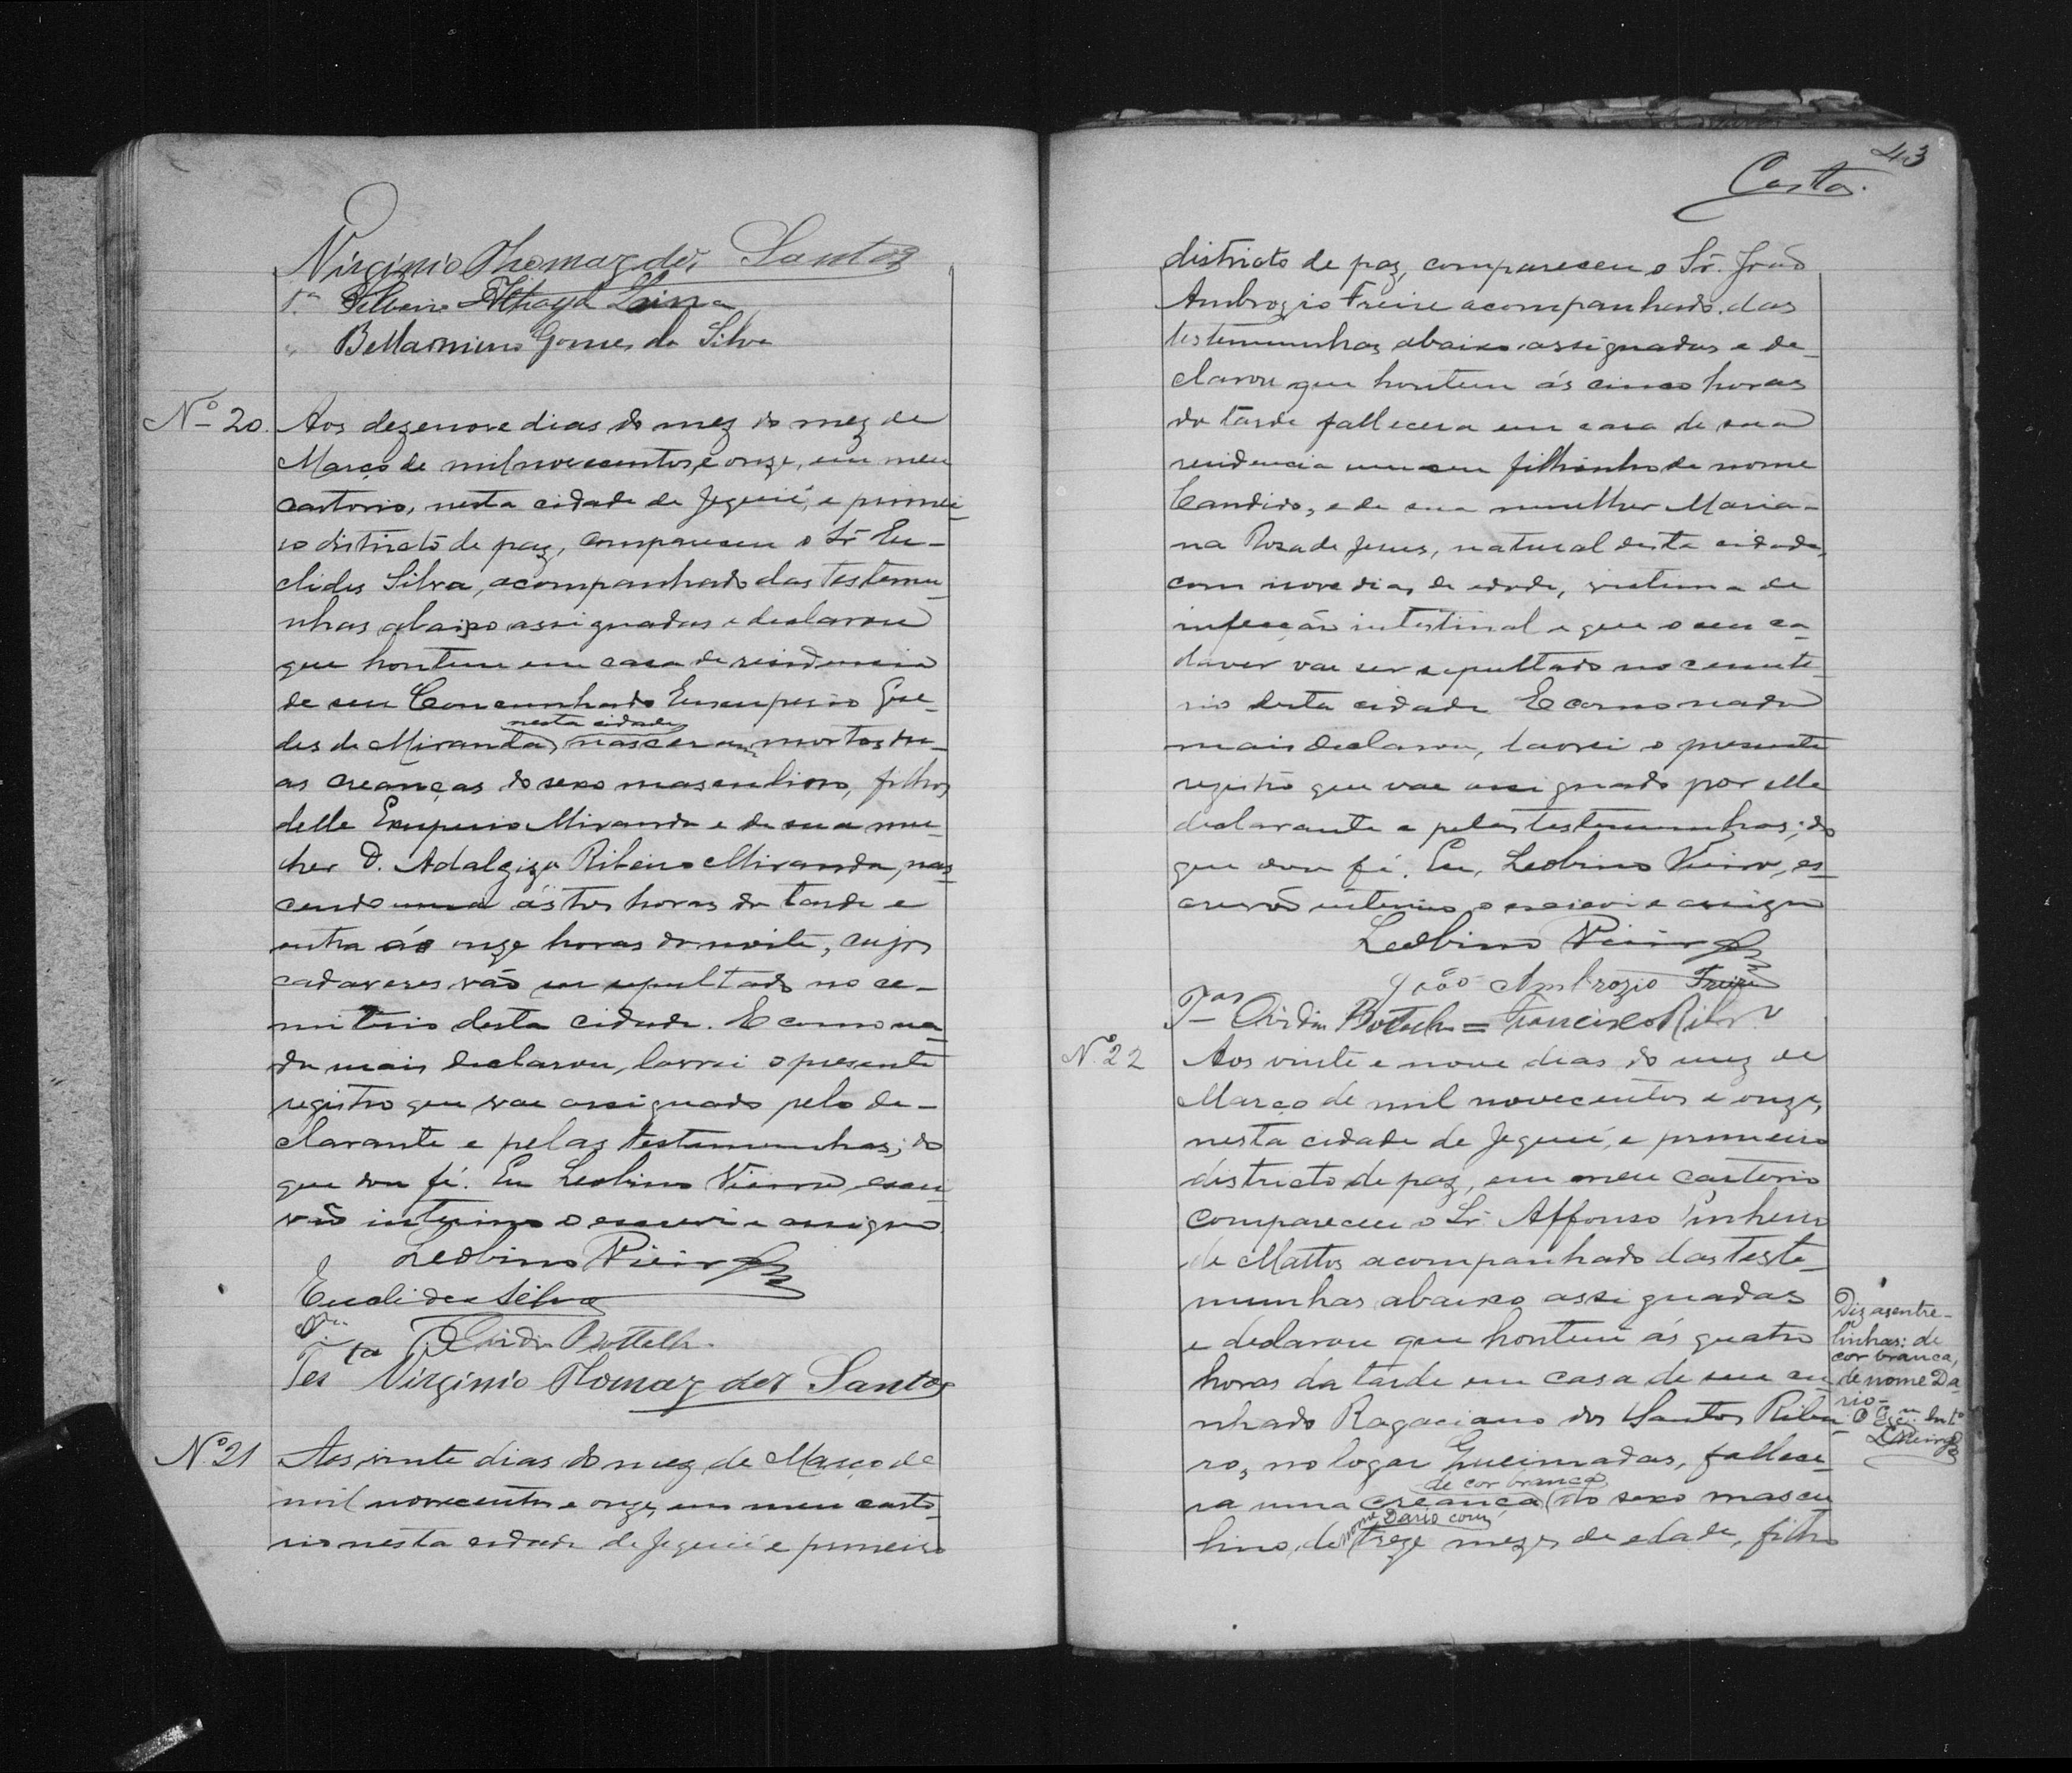 Virginio Thomaz dos Santos
Ta Silverio Athayd Lima
" Bellarmino Gomes da Silva
No 20. Aos dezenove dias do mez do mez de
Março de mil novecentos e onze, em meu
cartorio, nesta cidade de Jequié, e primei-
ro districto de paz, compareceu o Sr. Eu-
clides Silva, acompanhado das testemu-
nhas abaixo assignadas e declarou
que hontem em casa de residencia
de seu Concunhado Exuperio Gue-
nesta cidade
des de Miranda, nasceram mortas du-
as creanças do sexo masculino, filhos
delle Exuperio Miranda e de sua mu-
lher D. Adalgiza Ribeiro Miranda, nas-
cendo uma ás tres horas da tarde e
outra ás onze horas da noite, cujos
cadaveres vão ser sepultado no ce-
miterio desta cidade. E como na-
da mais declarou, lavrei o presente
registro que vae assignado pelo de-
clarante e pelas testemunhas; do
que dou fé. Eu Leobino Vieira, escri-
vão interino o escrevi e assigno.
Leobino Vieira
Euclides Silva
Ovidio Bottelh.
Testa Virginio Thomaz dos Santos
No 21 Aos vinte dias do mez de Março de
mil novecentos e onze, em meu carto-
rio nesta cidade de Jequié e primeiro
43
Costa.
districto de paz, compareceu o Sr. João
Ambrozio Freire acompanhado das
testemunhas abaixo assignadas e de-
clarou que hontem ás cinco horas
da tarde fallecera em casa de sua
residencia um seu filhinho de nome
Candido, e de sua mulher Maria-
na Rosa de Jesus, natural desta cidade,
com nove dias de edade, victima de
infecção intestinal e que o seu ca-
daver vae ser sepultado no cemite-
rio desta cidade E como nada
mais declarou, lavrei o presente
registro que vae assignado por elle
declarante e pelas testemunhas; do
que dou fé. Eu, Leobino Vieira, es-
crivão interino o escrevi e assigno
Leobino Vieira
João Ambrozio Freire
Tas Ovidio Botelho = Francisco Ribro
No 22 Aos vinte e nove dias do mez de
Março de mil novecentos e onze,
nesta cidade de Jequié, e primeiro
districto de paz, em meu cartorio
compareceu o Sr. Affonso Pinheiro
de Mattos acompanhado das teste-
munhas abaixo assignadas
e declarou que hontem ás quatro
horas da tarde em casa de seu cu-
nhado Ragaciano dos Santos Ribei-
ro, no logar Queimadas, fallece-
de cor branca
ra uma creança do sexo mascu-
nome Dario com
lino, de treze mezes de edade, filho
Diz asentre-
linhas: de
cor branca,
de nome Da-
rio-
O Escm Into
LVieira